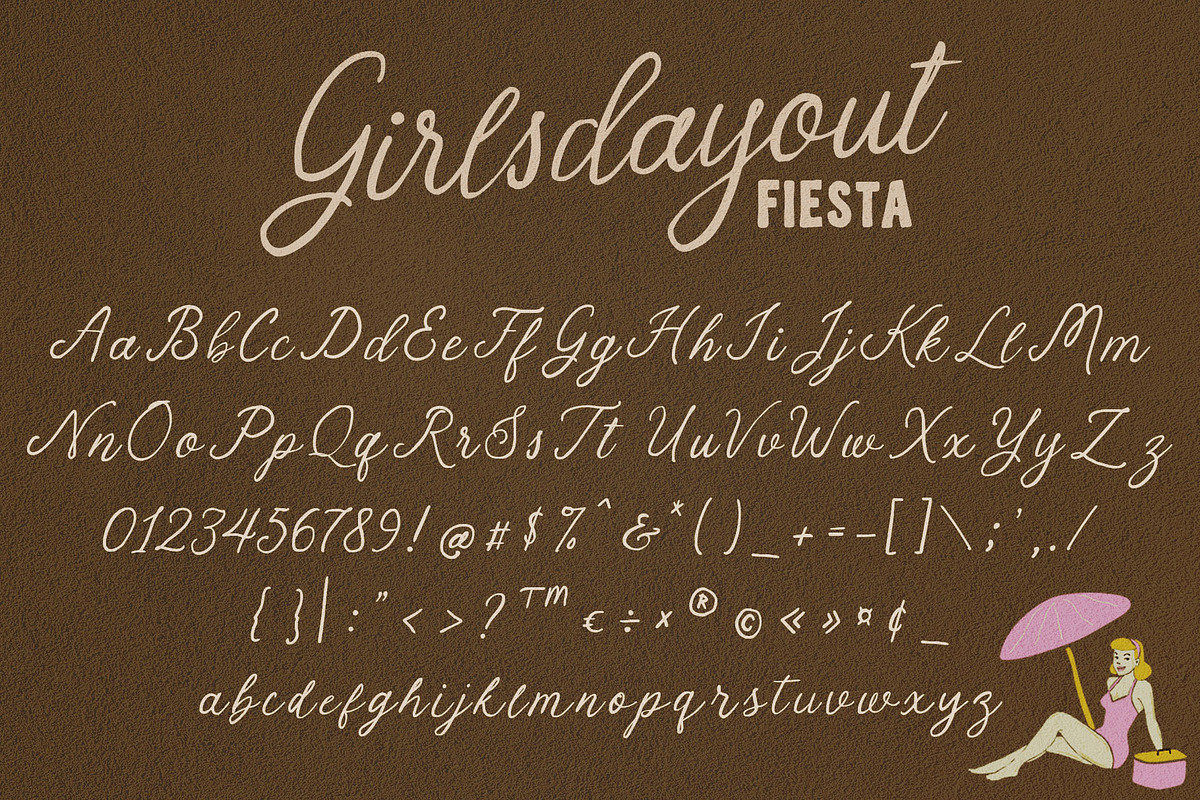 Girlsdayout
FIESTA
AaBbCcDdEeFfGgHhIiJjKkLlMm
NnOoPpQqRrSsTt UuVvWwXxYyZz
0123456789!@#$%^&*()_+=-[]\;',./
{}|:"<>?™€÷×®©«»¤¢_
abcdefghijklmnopqrstuvwxyz